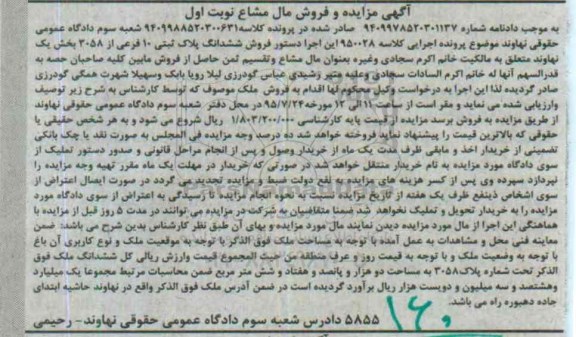 آگهی مزایده و فروش مال مشاع نوبت اول
به موجب دادنامه شماره ۹۴۰۹۹۷۸۵۲۰۳۰۱۱۳۷ صادر شده در پرونده کلاسه ۹۴۰۹۹۸۸۵۲۰۳۰۰۶۳۱ شعبه سوم دادگاه عمومی
حقوقی نهاوند موضوع پرونده اجرایی کلاسه ۹۵۰۰۲۸ این اجرا دستور فروش ششدانگ پلاک ثبتی ۱۰ فرعی از ۳۰۵۸ بخش یک
نهاوند متعلق به مالکیت خانم اکرم سجادی وغیره بعنوان مال مشاع وتقسیم ثمن حاصل از فروش مابین کلیه صاحبان حصه به
قدرالسهم آنها له خانم اکرم السادات سجادی وعلیه منیر رشیدی عباس گودرزی لیلا رویا بابک وسهیلا شهرت همگی گودرزی
صادر گردیده لذا این اجرا به درخواست وکیل محکوم لها اقدام به فروش ملک موصوف که توسط کارشناس به شرح زیر توصیف
وارزیابی شده می نماید و مقرر است از ساعت ۱۱ الی ۱۲ مورخه ۹۵/۷/۲۴ در محل دفتر شعبه سوم دادگاه عمومی حقوقی نهاوند
از طریق مزایده به فروش برسد مزایده از قیمت پایه کارشناسی ۱/۸۰۳/۲۰۰/۰۰۰ ریال شروع می شود و به هر شخص حقیقی یا
حقوقی که بالاترین قیمت را پیشنهاد نماید فروخته خواهد شد ده درصد وجه مزایده فی المجلس به صورت نقد یا چک بانکی
تضمینی از خریدار اخذ و مابقی ظرف مدت یک ماه از خریدار وصول و پس از انجام مراحل قانونی و صدور دستور تملیک از
سوی دادگاه مورد مزایده به نام خریدار منتقل خواهد شد در صورتی که خریدار در مهلت یک ماه مقرر تهیه وجه مزایده را
نپردازد سپرده وی پس از کسر هزینه های مزایده به نفع دولت ضبط و مزایده تجدید می گردد در صورت ایصال اعتراض از
سوی اشخاص ذینفع ظرف یک هفته از تاریخ مزایده نسبت به نحوه انجام مزایده تا رسیدگی به اعتراض از سوی دادگاه مورد
مزایده را به خریدار تحویل و تملیک نخواهد شد ضمنا متقاضیان به شرکت در مزایده می توانند در مدت ۵ روز قبل از مزایده با
هماهنگی این اجرا از مال مورد مزایده دیدن نمایند مال مورد مزایده و بهای آن طبق نظر کارشناس بدین شرح می باشد: ضمن
معاینه فنی محل و مشاهدات به عمل آمده با توجه به مساحت ملک فوق الذکر با توجه به موقعیت ملک و نوع کاربری آن باغ
با توجه به وضعیت ملک و با توجه به قیمت روز و عرف منطقه من حیث المجموع قیمت وارزش ریالی کل ششدانگ ملک فوق
الذکر تحت شماره پلاک ۳۰۵۸ به مساحت دو هزار و پانصد و هفتاد و شش متر مربع ضمن محاسبات مرتبط مجموعا یک میلیارد
وهشتصد و سه میلیون و دویست هزار ریال برآورد گردیده است در ضمن آدرس ملک فوق الذکر واقع در نهاوند حاشیه ابتدای
جاده دهبوره راه می باشد.
۵۸۵۵ دادرس شعبه سوم دادگاه عمومی حقوقی نهاوند- رحیمی
۱۶۰